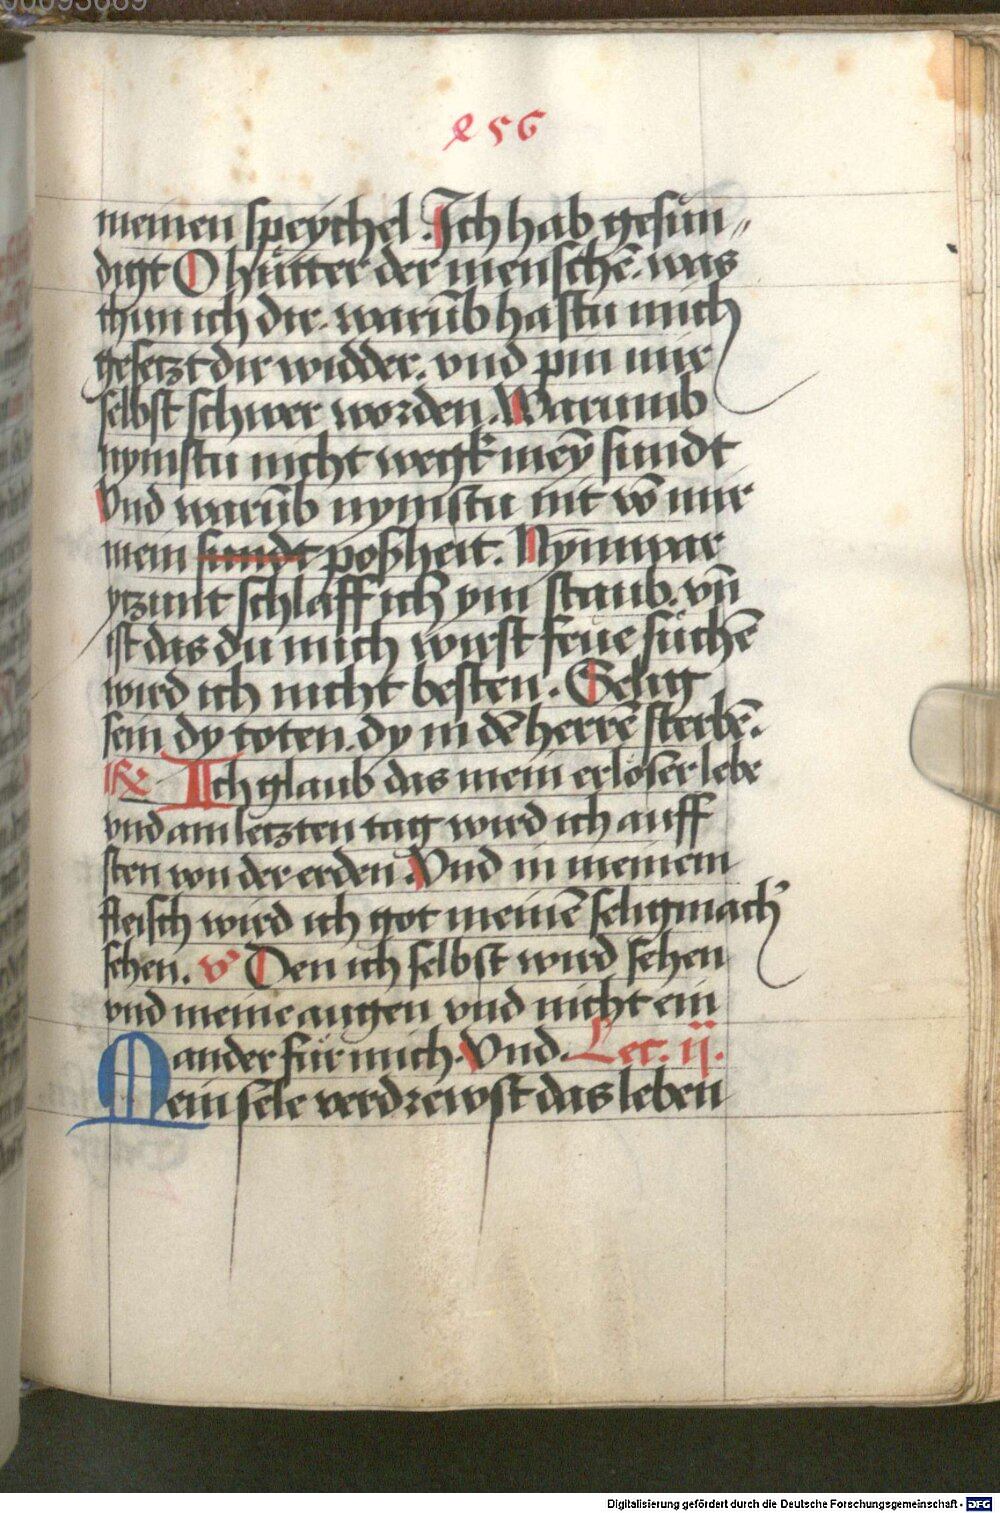 00093689
256
meinen speychel. Ich hab gesün„
digt O hütter der menschē. was
thun ich dir. warūb hastu mich
gesetzt dir widder. vnd pin mir
selbst schwer worden. Warumb
nymstu nicht wegk meȳ sundt
Vnd warūb nymstu nit vō mir
mein sundt poßheit. Nym war
ytzunt schlaff ich ym staub. vn̄
ist das du mich wirst frue suchē
wird ich nicht besten. Selig
sein dy toten. dy in dē herrē sterbē.
℟ Ich glaub das mein erloser lebt
vnd am letzten tag wird ich auff
sten von der erden. Vnd in meinem
fleisch wird ich got meinē seligmach̓
sehen. v̓ Den ich selbst wird sehen
vnd meine augen vnd nicht ein
ander für mich. Vnd. Lec. ij.
Mein sele verdrewst das leben
Digitalisierung gefördert durch die Deutsche Forschungsgemeinschaft - DFG